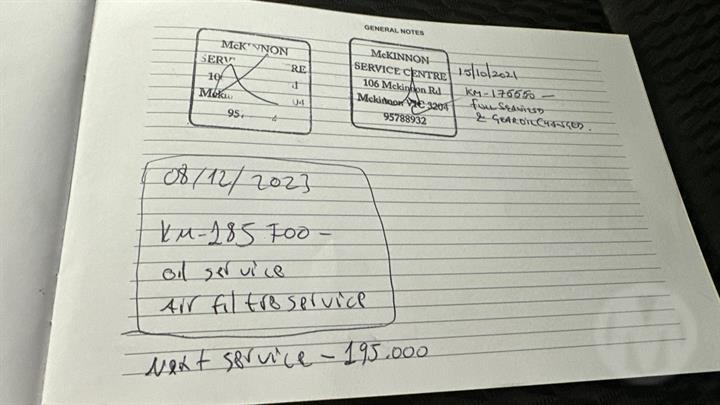 GENERAL NOTES
McKINNON
SERV RE
10
McKi 04
95.
McKINNON
SERVICE CENTRE
106 Mckinnon Rd
Mckinnon VIC 3204
95788932
15/10/2021
KM-176550 —
FULL SERVICED
& GEAROIL CHANGED.
08/12/2023
KM-185 700 —
oil service
Air filtre service
Next service - 195.000